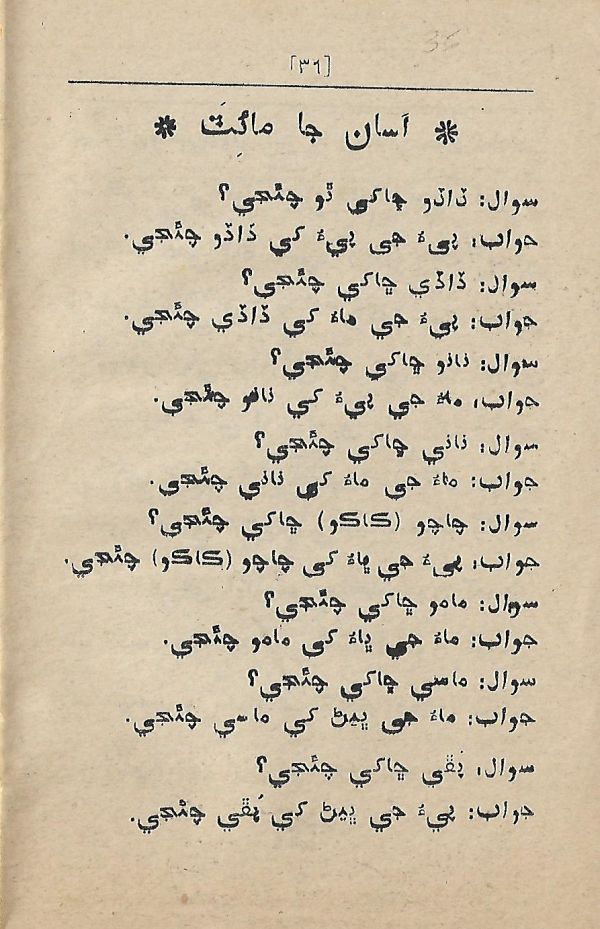 [۳٦]
* اَسان جا مائِٽَ *
سوال: ڏاڏو ڇاکي ٿو چئجي؟
جواب: پيءُ جي پيءُ کي ڏاڏو چئجي.
سوال: ڏاڏي ڇاکي چئجي؟
جواب: پيءُ جي ماءُ کي ڏاڏي چئجي.
سوال: نانو ڇاکي چئجي؟
جواب: ماءُ جي پيءُ کي نانو چئجي.
سوال: ناني ڇاکي چئجي؟
جواب: ماءُ جي ماءُ کي ناني چئجي.
سوال: چاچو (ڪاڪو) ڇاکي چئجي؟
جواب: پيءُ جي ڀاءُ کي چاچو (ڪاڪو) چئجي.
سوال: مامو ڇاکي چئجي؟
جواب: ماءُ جي ڀاءُ کي مامو چئجي.
سوال: ماسي ڇاکي چئجي؟
جواب: ماءُ جي ڀيڻ کي ماسي چئجي.
سوال: پُڦي ڇاکي چئجي؟
جواب: پيءُ جي ڀيڻ کي پُڦي چئجي.